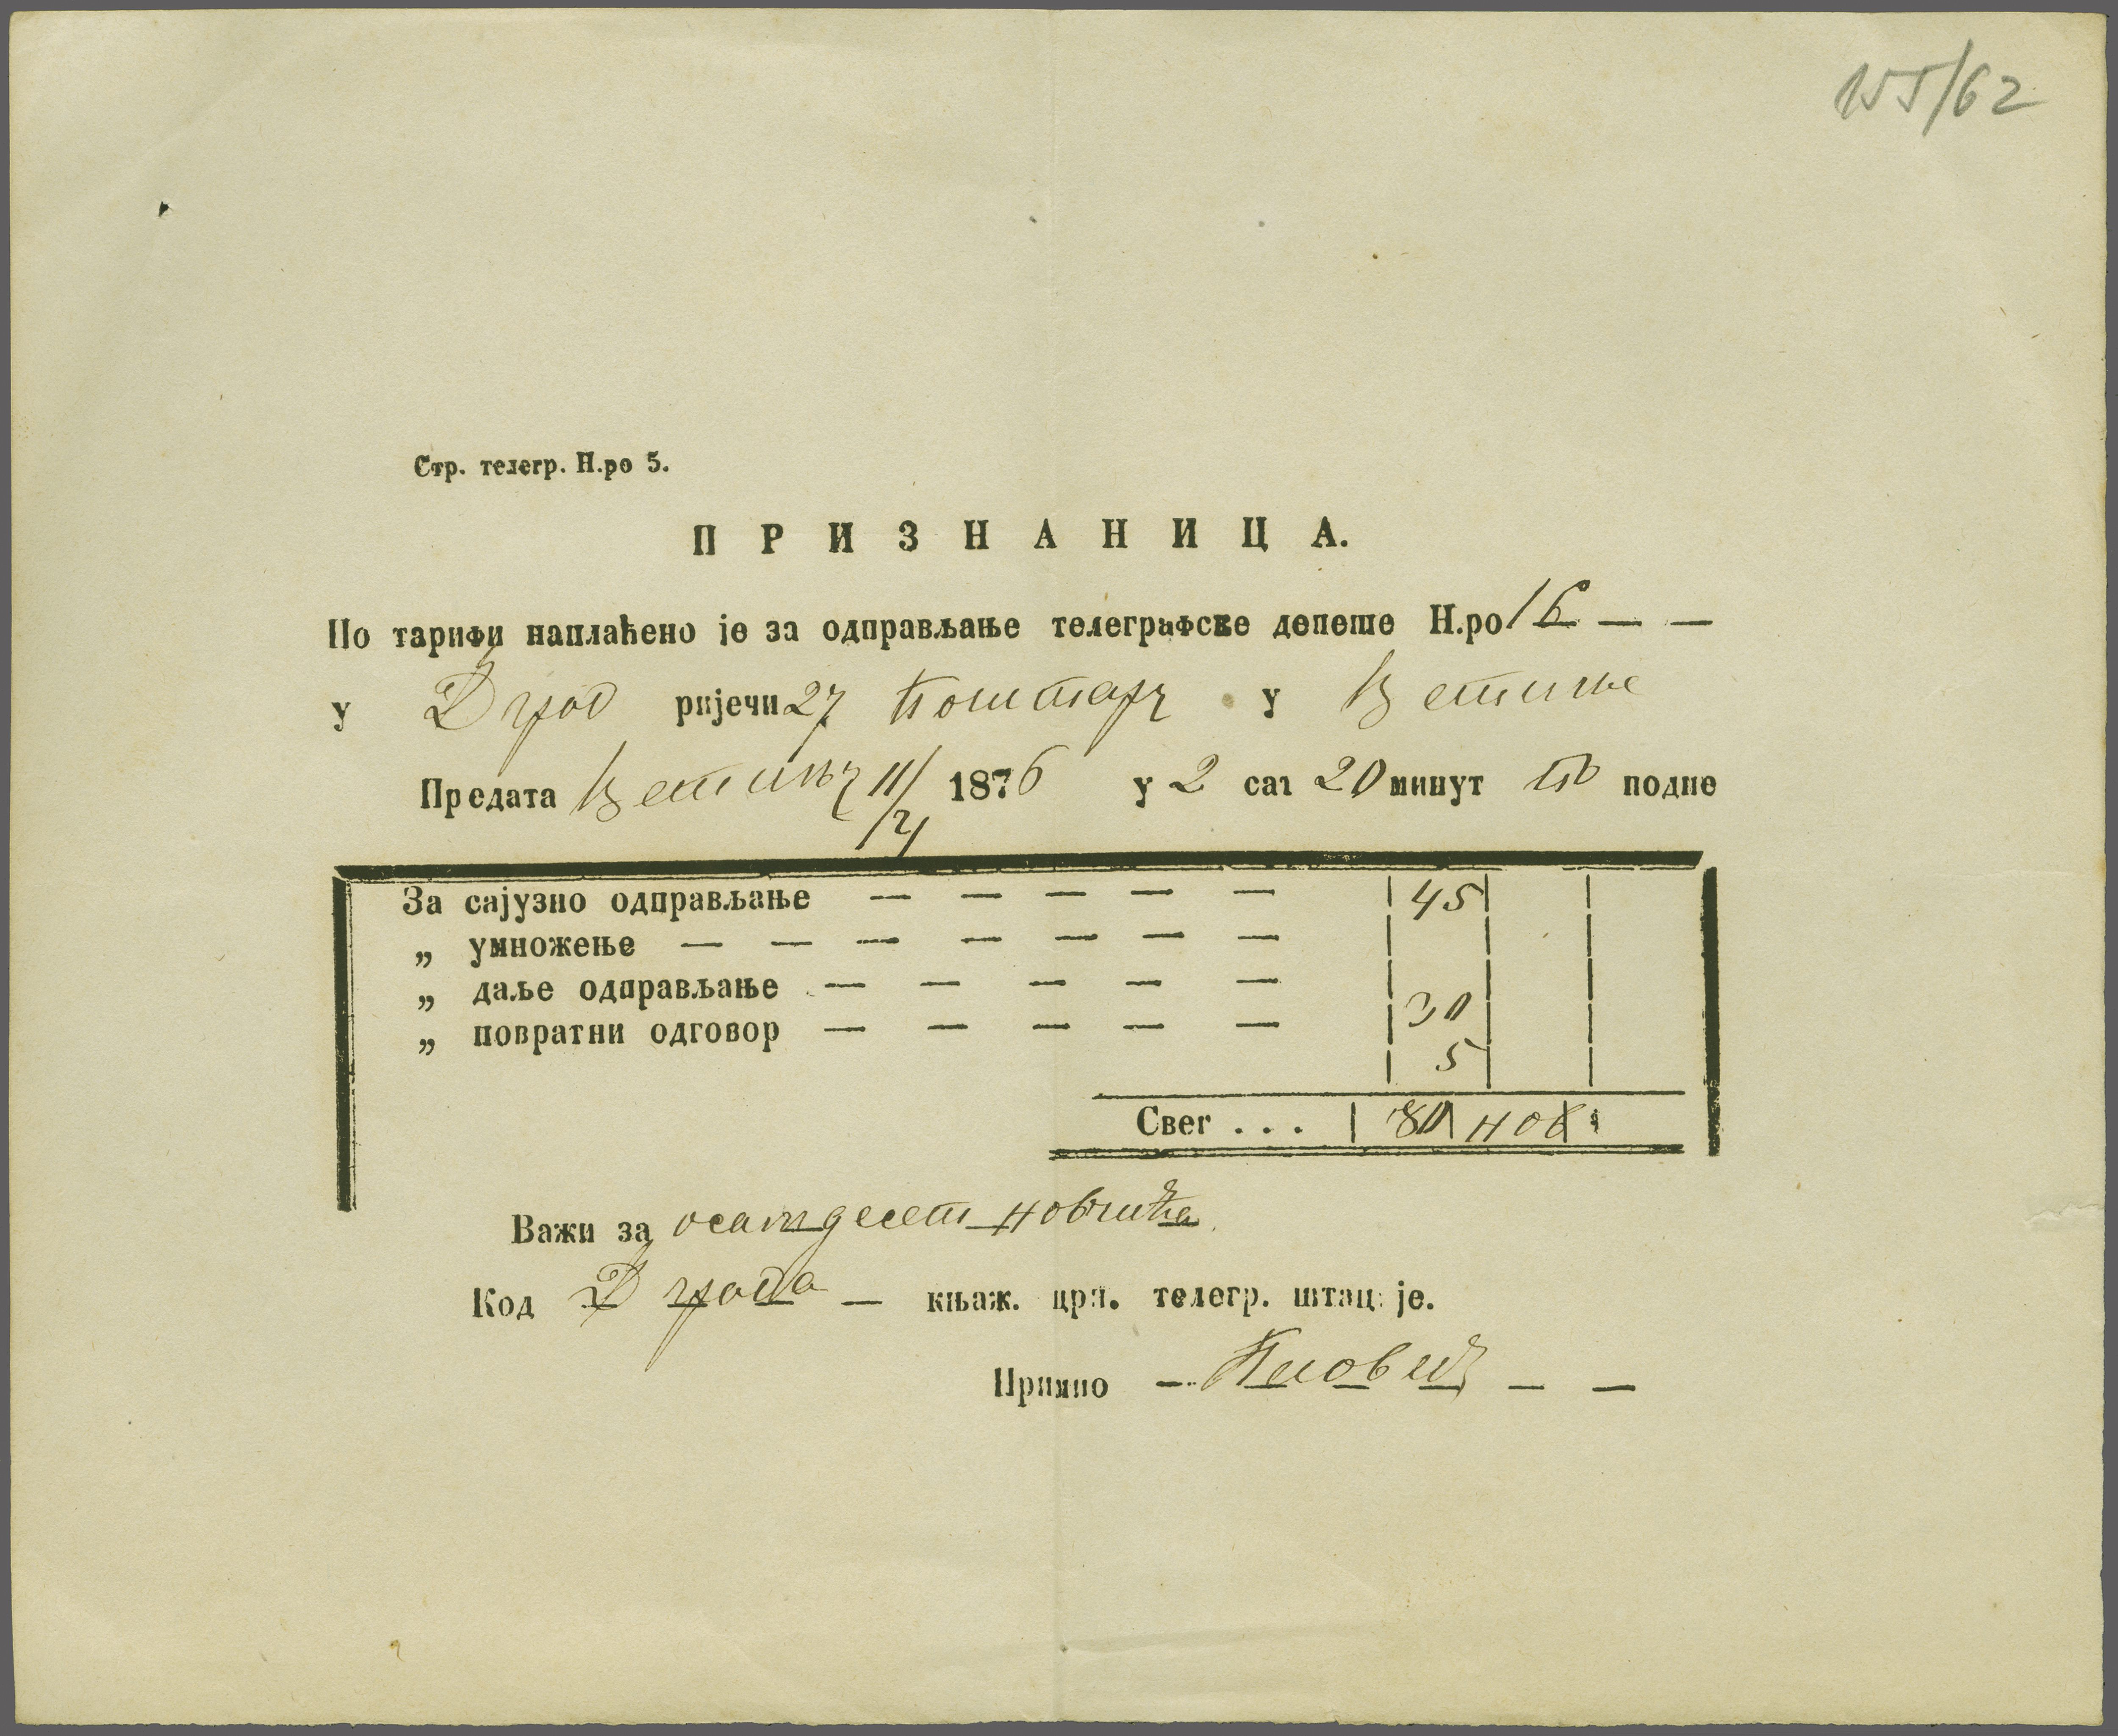 155/62
Стр. телегр. Н.ро 5.
ПРИЗНАНИЦА.
По тарифи наплаћено је за одправљање телеграфске депеше Н.ро 16 — —
у Д град ријечи 27 Поштару у Цетиње
Предата Цетињу 11/ 1876 у 2 саг 20 минут по подне
За сајузно одправљање — — — — — 45
„ умножење — — — — — — —
„ даље одправљање — — — — — 30
„ повратни одговор — — — — —
5
Свег . . . 80 нов.
Важи за осамдесет новчића
Код Д града — књаж. црн. телегр. штације.
Примио — — —